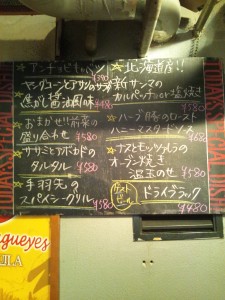 アンチョビキャベツ
¥390
ヤングコーンとアサリのサラダ
焦がし醤油風味 ¥480
おまかせ!!前菜の
盛り合わせ ¥580
ササミとアボカドの
タルタル ¥580
手羽先の
スパイシーグリル ¥580
北海道産!!
新サンマの
カルパッチョor塩焼き
¥580
ハーブ豚のロースト
ハニーマスタードソース
¥680
ナスとモッツァレラの
オーブン焼き
温玉のせ ¥580
ドライブラック
¥480
gueyes